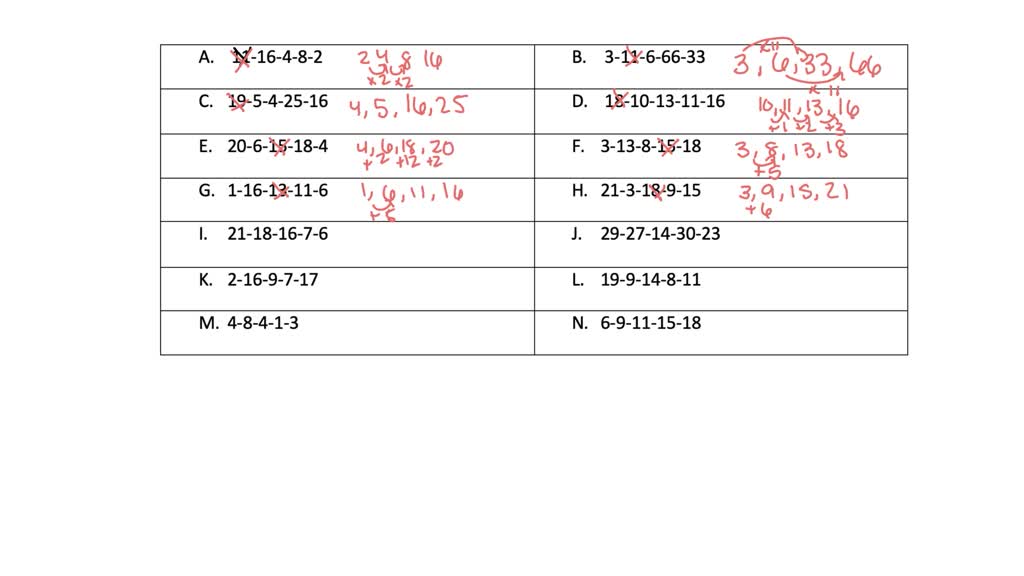 A. 11-16-4-8-2 2 4 8 16
×2 ×2
B. 3-11-6-66-33 3, 6, 33, 66
×11
× 11
C. 19-5-4-25-16 4, 5, 16, 25
D. 18-10-13-11-16 10, 11, 13, 16
+1 +2 +3
E. 20-6-15-18-4 4, 6, 18, 20
+2 +12 +2
F. 3-13-8-15-18 3, 8, 13, 18
+5
G. 1-16-13-11-6 1, 6, 11, 16
+5
H. 21-3-18-9-15 3, 9, 15, 21
+6
I. 21-18-16-7-6
J. 29-27-14-30-23
K. 2-16-9-7-17
L. 19-9-14-8-11
M. 4-8-4-1-3
N. 6-9-11-15-18